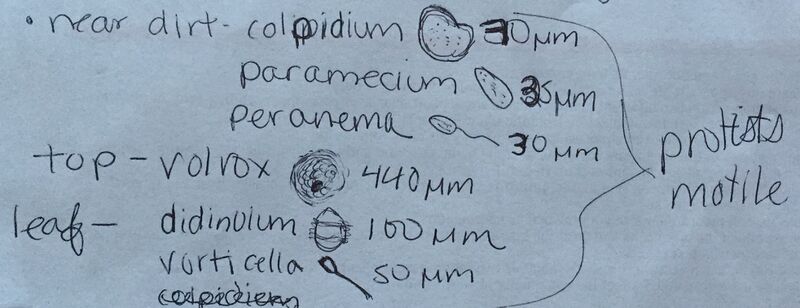 • near dirt - colpidium 30μm
paramecium 35μm
peranema 30μm
top - volvox 440μm
leaf - didinuium 100μm
vorticella 50μm
protists
motile